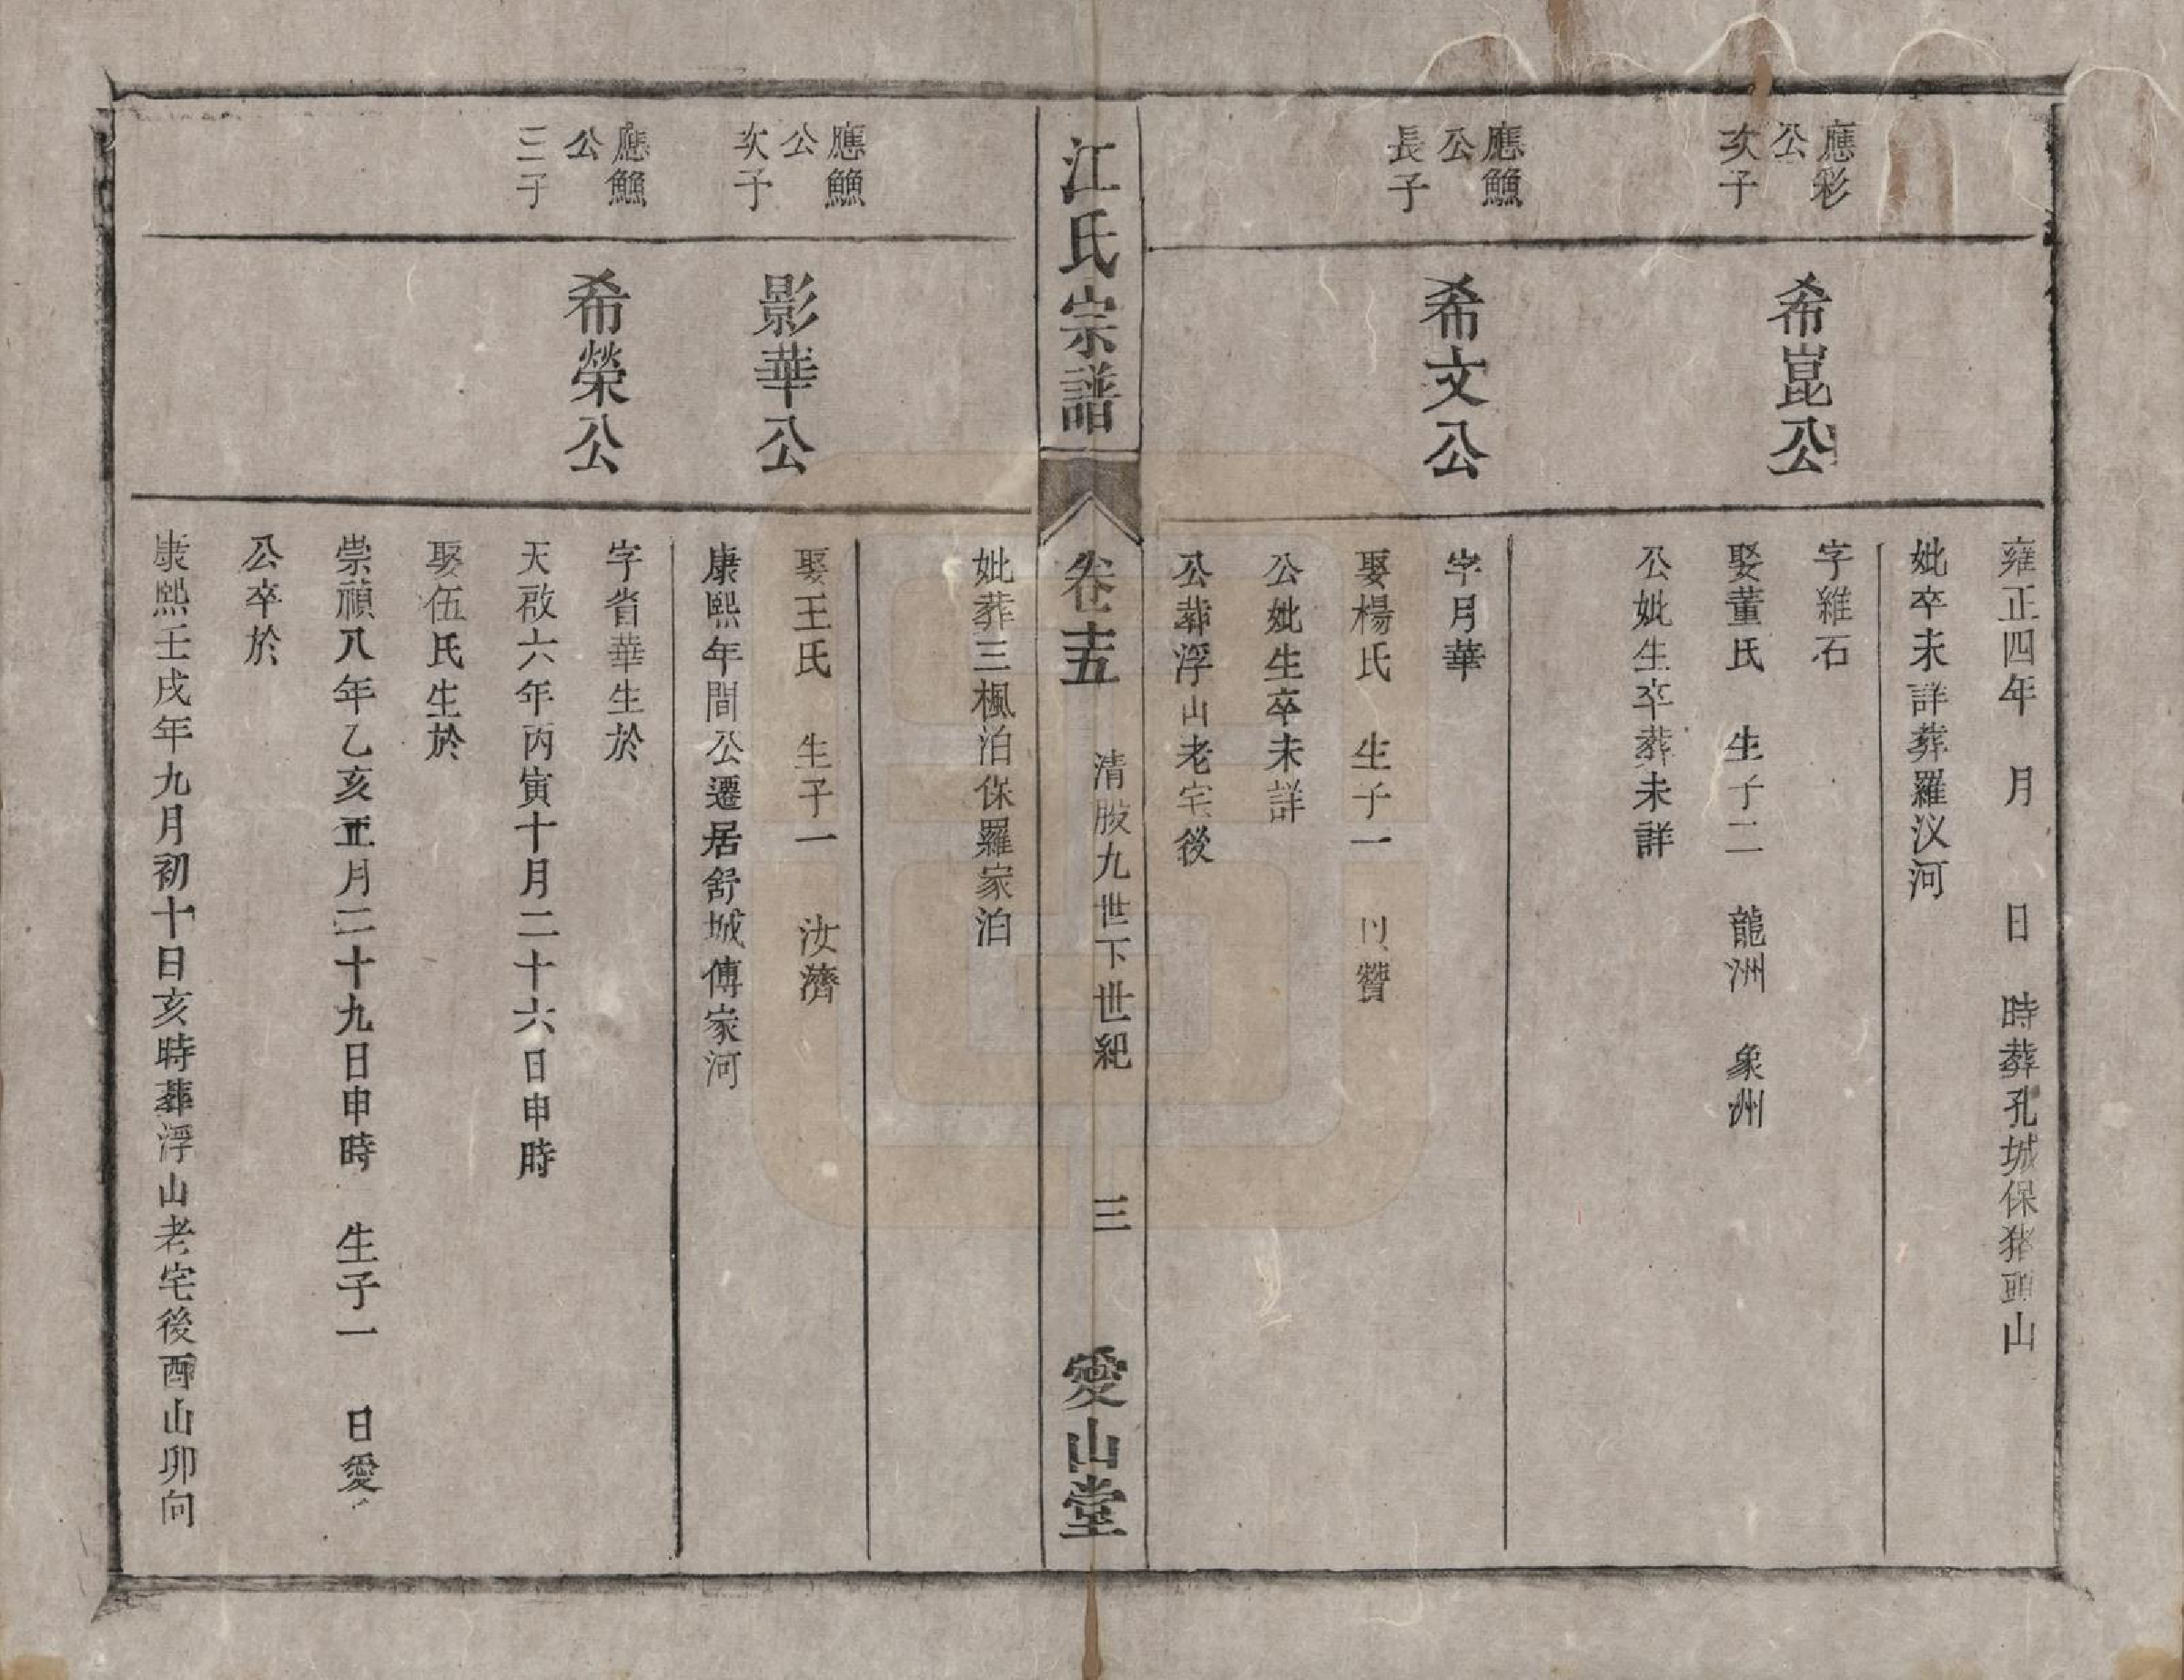 雍正四年　月　日　時葬孔城保猪頭山
妣卒未詳葬羅汊河
應彩
公
次子
希崑公
字維石
娶董氏　生子二　龍洲　象洲
公妣生卒葬未詳
應鱻
公
長子
希文公
字月華
娶楊氏　生子一　贊
公妣生卒未詳
公葬浮山老宅後
江氏宗譜
卷十五
清股九世下世紀
三
愛山堂
妣葬三楓泊保羅家泊
應鱻
公
次子
影華公
娶王氏　生子一　汝濟
康熙年間公遷居舒城傅家河
應鱻
公
三子
希榮公
字省華生於
天啟六年丙寅十月二十六日申時
娶伍氏生於
崇禎八年乙亥五月二十九日申時　生子一　日愛
公卒於
康熙壬戌年九月初十日亥時葬浮山老宅後酉山卯向